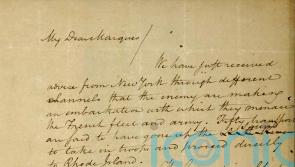 My Dear Marquis /
We have just received
advice from New York through different
channels that the enemy are making
an embarkation with which they menace
the French fleet and army. Fifty transports
are said to have gone up the Sound
to take in troops and proceed directly
to Rhode Island.